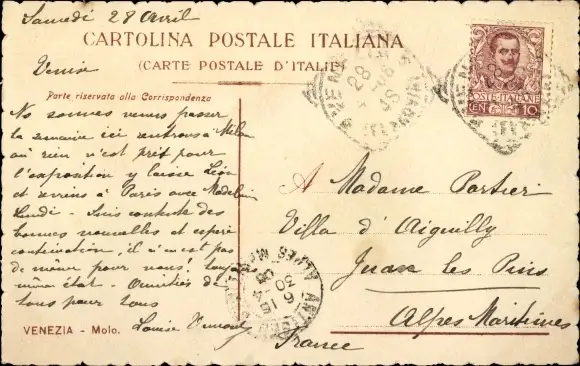 Samedi 28 Avril
CARTOLINA POSTALE ITALIANA
(CARTE POSTALE D'ITALIE)
Venise
Parte riservata alla Corrispondenza
Nous sommes venus passer
la semaine ici entrons à Milan
où rien n'est prêt pour
l'exposition y laisse Léon
et reviens à Paris avec Madeleine
Lundi - Suis contente des
bonnes nouvelles et espère
continuation, il n'en est pas
de même pour nous! toujours
même état - Amitiés de
tous pour tous
Louise
VENEZIA - Molo.
POSTE ITALIANE
CENTESIMI 10
28
A Madame Portier
Villa d'Aiguilly
Juan les Pins
Alpes Maritimes
France
ALPES MARIT
6 15
30
06